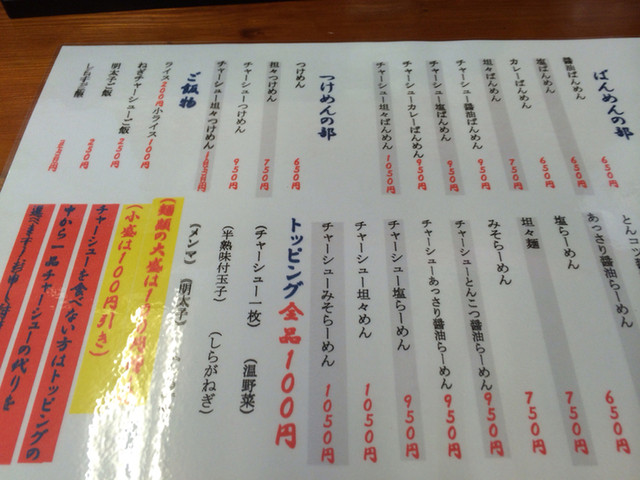 ばんめんの部
醤油ばんめん 650円
塩ばんめん 650円
カレーばんめん 650円
坦々ばんめん 750円
チャーシュー醤油ばんめん 950円
チャーシュー塩ばんめん 950円
チャーシューカレーばんめん 950円
チャーシュー坦々ばんめん 1050円
つけめんの部
つけめん 650円
担々つけめん 750円
チャーシューつけめん 950円
チャーシュー坦々つけめん 1050円
ご飯物
ライス200円 小ライス100円
ねぎチャーシューご飯 250円
明太子ご飯 250円
とんコツ
あっさり醤油らーめん 650円
塩らーめん 650円
坦々麺 750円
みそらーめん 750円
チャーシューとんこつ醤油らーめん 950円
チャーシューあっさり醤油らーめん 950円
チャーシュー塩らーめん 950円
チャーシュー坦々めん 1050円
チャーシューみそらーめん 1050円
トッピング全品100円
(チャーシュー一枚) (温野菜)
(半熟味付玉子) (しらがねぎ)
(メンマ) (明太子)
(麺類の大盛は1
(小盛は100円引き)
チャーシューを食べない方はトッピングの
中から一品チャーシューの代りを
選べます!お申し付け